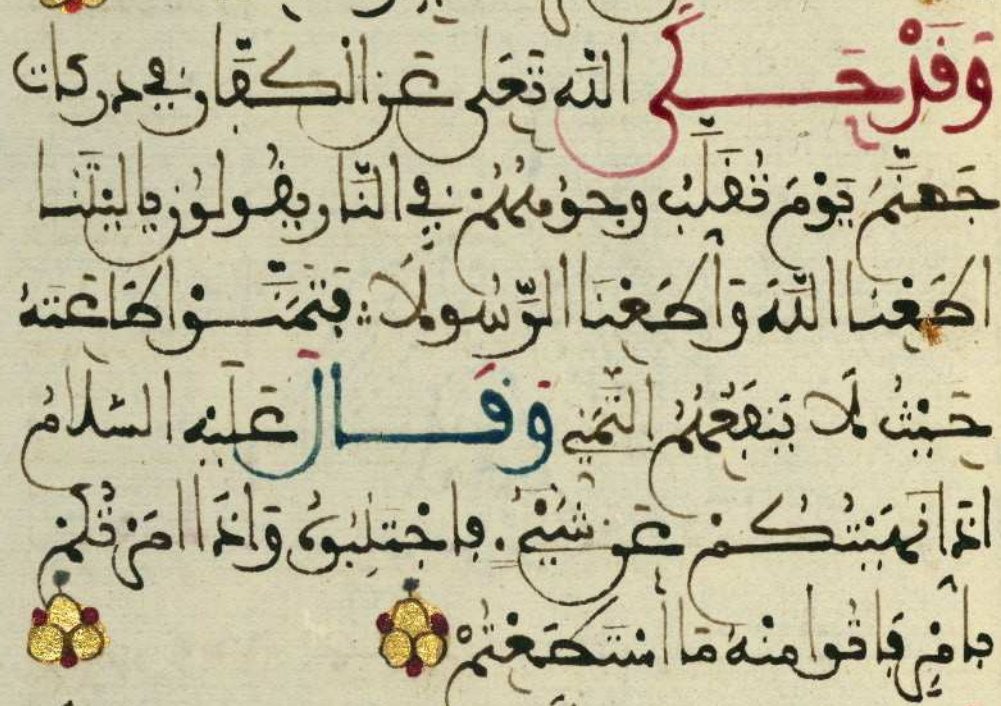 وَقَدْ حَكَى الله تَعَلى عَن الكفّار في دركات
جَهنَّمَ يَوْمَ تُقَلَّبُ وجُوههُمْ في النّار يقولون ياليْتَنا
اطَعْنَا اللَّهَ وَأَطَعْنَا الرَّسُولَا فتمَنَّوا طَاعَتَهُ
حَيْثُ لَا يَنفَعُهُمُ التَّمَنِّي وَقَالَ عَلَيْهِ السَّلَامُ
اذَا نَهَيْتُكُمْ عَن شَيْءٍ فاجْتَنِبُوهُ وَاذَا امَرْتُكُمْ
بِأَمْرٍ فَاتُوا مِنْهُ مَا اسْتَطَعْتُمْ